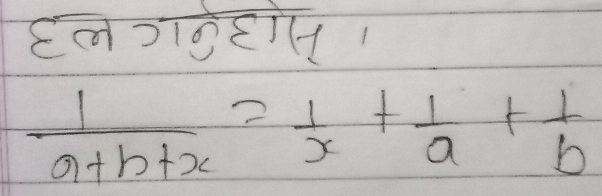 हल गर्नुहोस् ।
1/(a+b+x) = 1/x + 1/a + 1/b